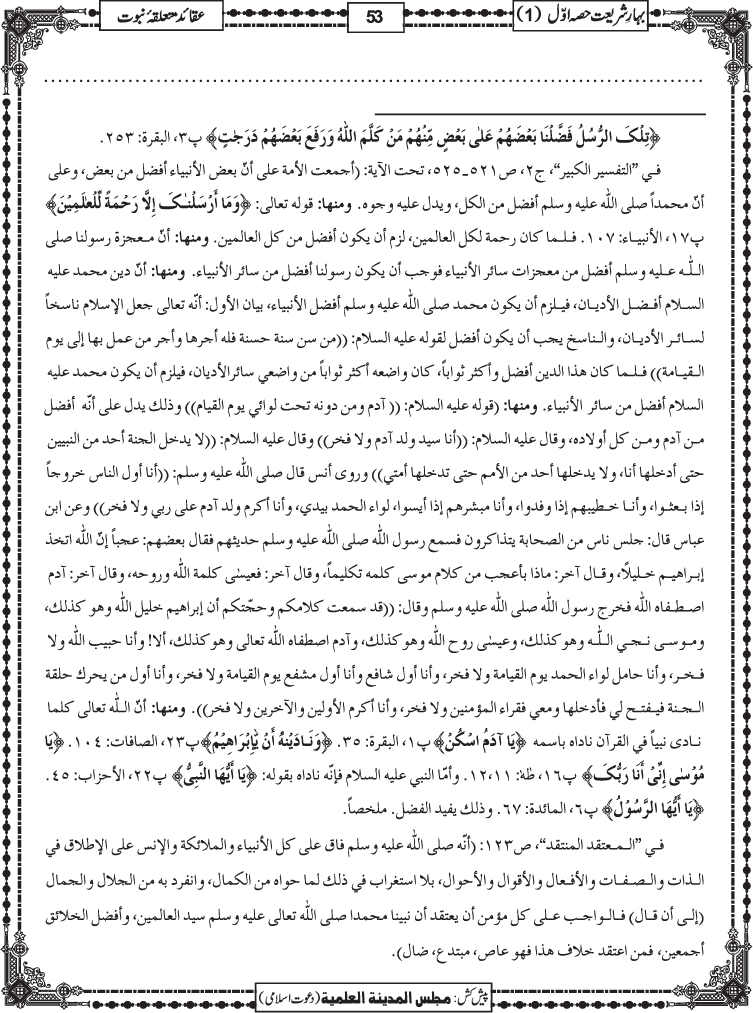 بہارِ شریعت حصہ اوّل (1)
53
عقائد متعلقۂ نبوت
﴿تِلْکَ الرُّسُلُ فَضَّلْنَا بَعْضَهُمْ عَلٰى بَعْضٍ مِّنْهُمْ مَنْ كَلَّمَ اللّٰهُ وَرَفَعَ بَعْضَهُمْ دَرَجٰتٍ﴾ پ۳، البقرة: ۲۵۳.
في ”التفسير الكبير“، ج۲، ص۵۲۱ـ۵۲۵، تحت الآية: (أجمعت الأمة على أنّ بعض الأنبياء أفضل من بعض، وعلى
أنّ محمداً صلى الله عليه وسلم أفضل من الكل، ويدل عليه وجوه. ومنها: قوله تعالى: ﴿وَمَا أَرْسَلْنٰـکَ اِلَّا رَحْمَةً لِّلْعٰلَمِيْنَ﴾
پ۱۷، الأنبياء: ۱۰۷. فلما كان رحمة لكل العالمين، لزم أن يكون أفضل من كل العالمين. ومنها: أنّ معجزة رسولنا صلى
الله عليه وسلم أفضل من معجزات سائر الأنبياء فوجب أن يكون رسولنا أفضل من سائر الأنبياء. ومنها: أنّ دين محمد عليه
السلام أفضل الأديان، فيلزم أن يكون محمد صلى الله عليه وسلم أفضل الأنبياء، بيان الأول: أنّه تعالى جعل الإسلام ناسخاً
لسائر الأديان، والناسخ يجب أن يكون أفضل لقوله عليه السلام: ((من سن سنة حسنة فله أجرها وأجر من عمل بها إلى يوم
القيامة)) فلما كان هذا الدين أفضل وأكثر ثواباً، كان واضعه أكثر ثواباً من واضعي سائر الأديان، فيلزم أن يكون محمد عليه
السلام أفضل من سائر الأنبياء. ومنها: (قوله عليه السلام: (( آدم ومن دونه تحت لوائي يوم القيام)) وذلك يدل على أنّه أفضل
من آدم ومن كل أولاده، وقال عليه السلام: ((أنا سيد ولد آدم ولا فخر)) وقال عليه السلام: ((لا يدخل الجنة أحد من النبيين
حتى أدخلها أنا، ولا يدخلها أحد من الأمم حتى تدخلها أمتي)) وروى أنس قال صلى الله عليه وسلم: ((أنا أول الناس خروجاً
إذا بعثوا، وأنا خطيبهم إذا وفدوا، وأنا مبشرهم إذا أيسوا، لواء الحمد بيدي، وأنا أكرم ولد آدم على ربي ولا فخر)) وعن ابن
عباس قال: جلس ناس من الصحابة يتذاكرون فسمع رسول الله صلى الله عليه وسلم حديثهم فقال بعضهم: عجباً إنّ الله اتخذ
إبراهيم خليلاً، وقال آخر: ماذا بأعجب من كلام موسى كلمه تكليماً، وقال آخر: فعيسٰى كلمة الله وروحه، وقال آخر: آدم
اصطفاه الله فخرج رسول الله صلى الله عليه وسلم وقال: ((قد سمعت كلامكم وحجّتكم أن إبراهيم خليل الله وهو كذلك،
وموسى نجي الله وهو كذلك، وعيسٰى روح الله وهو كذلك، وآدم اصطفاه الله تعالى وهو كذلك، ألا! وأنا حبيب الله ولا
فخر، وأنا حامل لواء الحمد يوم القيامة ولا فخر، وأنا أول شافع وأنا أول مشفع يوم القيامة ولا فخر، وأنا أول من يحرك حلقة
الجنة فيفتح لي فأدخلها ومعي فقراء المؤمنين ولا فخر، وأنا أكرم الأولين والآخرين ولا فخر)). ومنها: أنّ الله تعالى كلما
نادى نبياً في القرآن ناداه باسمه ﴿يَا آدَمُ اسْكُنْ﴾ پ۱، البقرة: ۳۵. ﴿وَنَادَيْنٰهُ أَنْ يّٰإِبْرَاهِيْمُ﴾پ۲۳، الصافات: ۱۰۴. ﴿يَا
مُوْسٰى إِنِّيْ أَنَا رَبُّکَ﴾ پ۱۶، طٰهٰ: ۱۲،۱۱. وأمّا النبي عليه السلام فإنّه ناداه بقوله: ﴿يَا أَيُّهَا النَّبِيُّ﴾ پ۲۲، الأحزاب: ۴۵.
﴿يَا أَيُّهَا الرَّسُوْلُ﴾ پ۶، المائدة: ۶۷. وذلك يفيد الفضل. ملخصاً.
في ”المعتقد المنتقد“، ص۱۲۳: (أنّه صلى الله عليه وسلم فاق على كل الأنبياء والملائكة والإنس على الإطلاق في
الذات والصفات والأفعال والأقوال والأحوال، بلا استغراب في ذلك لما حواه من الكمال، وانفرد به من الجلال والجمال
(إلى أن قال) فالواجب على كل مؤمن أن يعتقد أن نبينا محمدا صلى الله تعالى عليه وسلم سيد العالمين، وأفضل الخلائق
أجمعين، فمن اعتقد خلاف هذا فهو عاص، مبتدع، ضال).
پیش کش: مجلس المدينة العلمية (دعوت اسلامی)